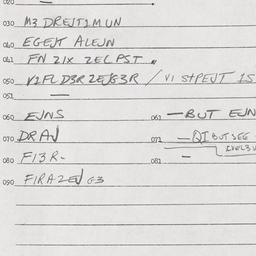 020 —
030 M3 DREJT1MUN
040 EGEJT ALEJN
041 FN ZIX ZELPST .
050 V1FLD3R ZEJG3R / VI STPEJT 1S
051 —
060 EJNS 061 — BUT EJN
070 DRAJ 071 — QI BUT SEE
080 F13R- 081 —
090 F1RAZEJ G3